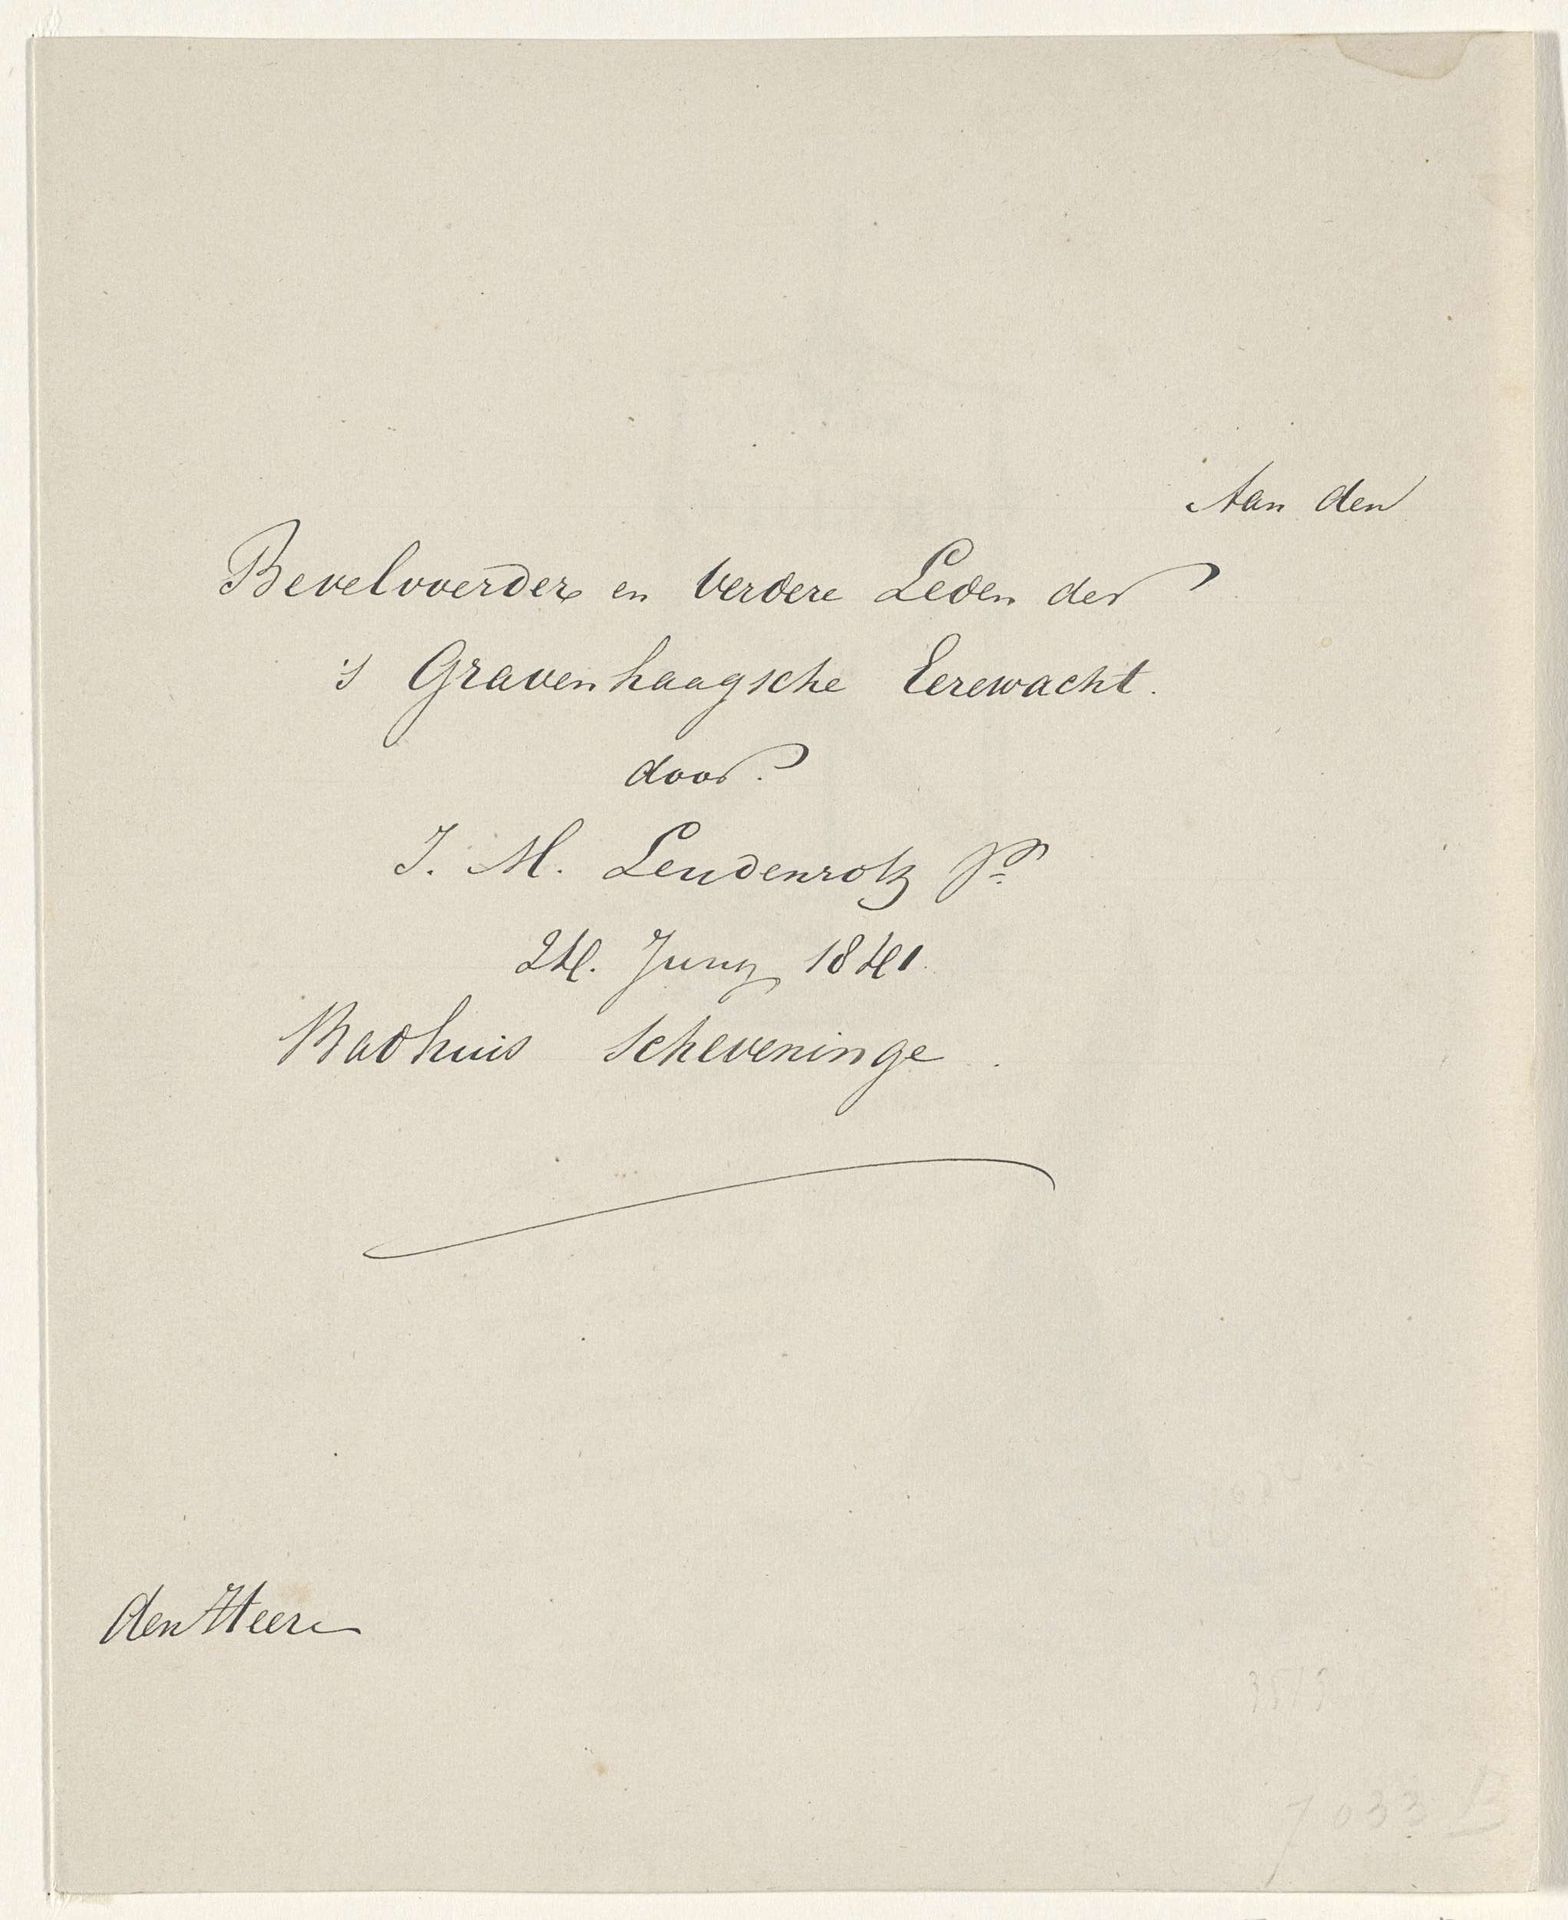 Aan den
Bevelvoerder en Verdere Leden der
's Gravenhaagsche Eerewacht.
door.
J. M. Leudenrotz
24. Juny 1841.
Badhuis Scheveninge.
den Heere
7033